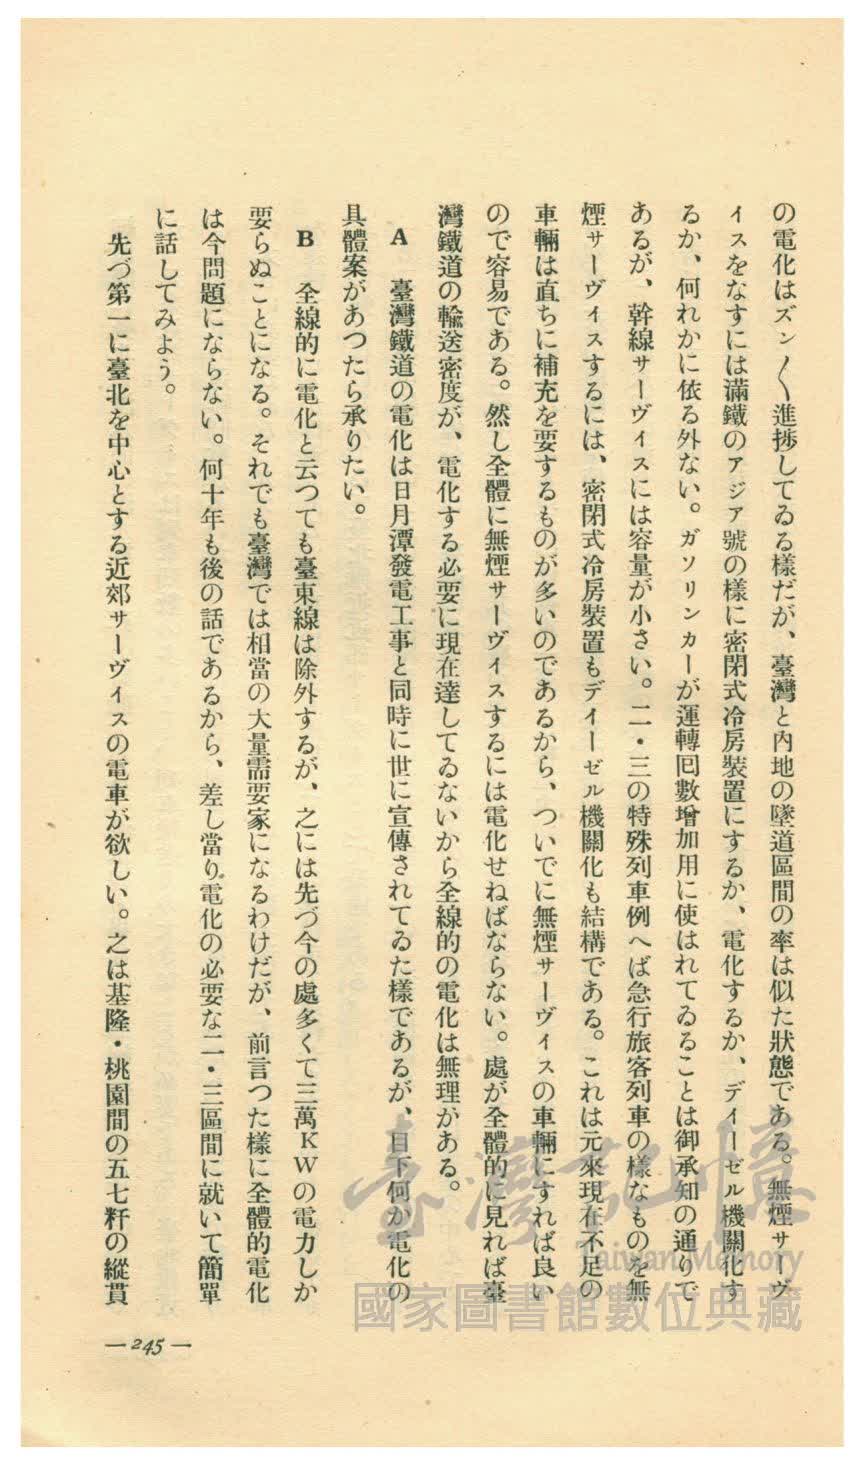 の電化はズン〳〵進捗してゐる樣だが、臺灣と內地の墜道區間の率は似た狀態である。無煙サーヴ
イスをなすには滿鐵のアジア號の樣に密閉式冷房裝置にするか、電化するか、デイーゼル機關化す
るか、何れかに依る外ない。ガソリンカーが運轉囘數增加用に使はれてゐることは御承知の通りで
あるが、幹線サーヴイスには容量が小さい。二・三の特殊列車例へば急行旅客列車の樣なものを無
煙サーヴイスするには、密閉式冷房裝置もデイーゼル機關化も結構である。これは元來現在不足の
車輛は直ちに補充を要するものが多いのであるから、ついでに無煙サーヴイスの車輛にすれば良い
ので容易である。然し全體に無煙サーヴイスするには電化せねばならない。處が全體的に見れば臺
灣鐵道の輸送密度が、電化する必要に現在達してゐないから全線的の電化は無理がある。
A　臺灣鐵道の電化は日月潭發電工事と同時に世に宣傳されてゐた樣であるが、目下何か電化の
具體案があつたら承りたい。
B　全線的に電化と云つても臺東線は除外するが、之には先づ今の處多くて三萬KWの電力しか
要らぬことになる。それでも臺灣では相當の大量需要家になるわけだが、前言つた樣に全體的電化
は今問題にならない。何十年も後の話であるから、差し當り電化の必要な二・三區間に就いて簡單
に話してみよう。
先づ第一に臺北を中心とする近郊サーヴイスの電車が欲しい。之は基隆・桃園間の五七粁の縱貫
—245—
臺灣記憶
Taiwan Memory
國家圖書館數位典藏